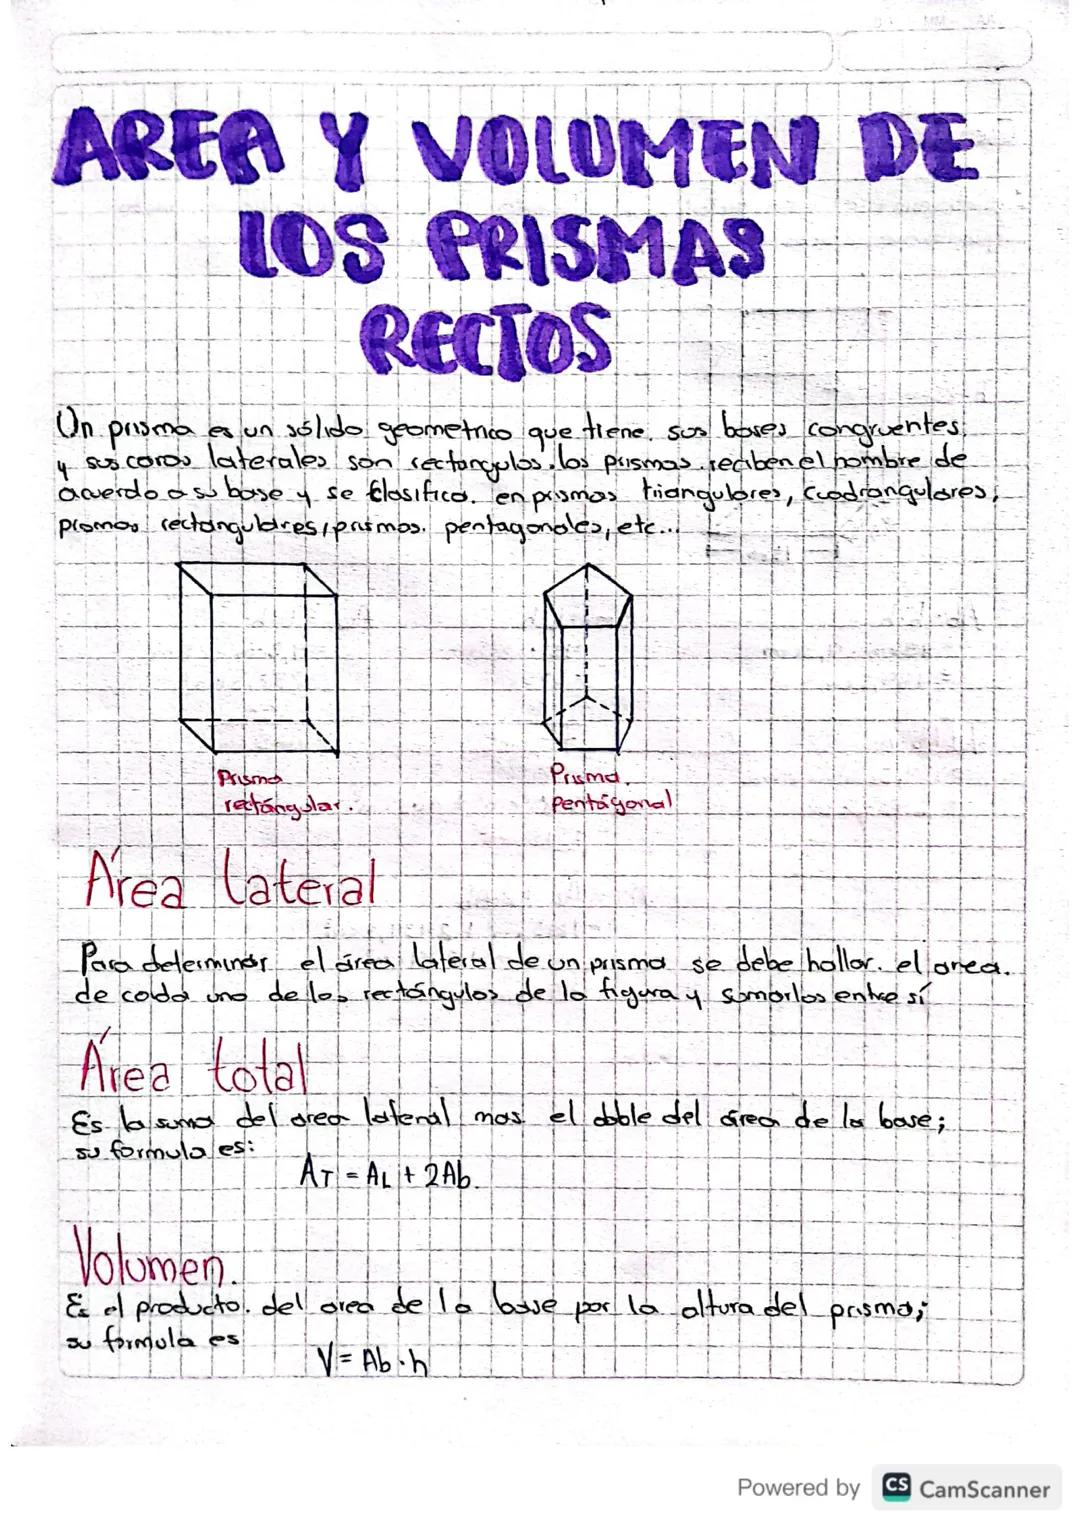 AREA Y VOLUMEN DE
LOS PRISMAS
RECTOS
Un prisma es un sólido geometrico que tiene. sus bases congruentes,
y sus caras laterales son rectangulos. los prismas reciben el nombre de
acuerdo a su base y se clasifica. en prismas triangulares, cuadrangulares,
prismas rectangulares, prismas. pentagonales, etc...
Prisma
rectángular.
Prisma.
pentágonal
Área lateral
Para determinar el área lateral de un prisma se debe hallar. el area.
de cada uno de los rectángulos de la figura y sumarlos entre sí
Área total
Es la suma del area lateral mas el doble del área de la base;
su formula es:
AT = AL + 2Ab.
Volumen.
Es el producto. del area de la base por la altura del prisma;
su formula es
V = Ab · h
Powered by CS CamScanner